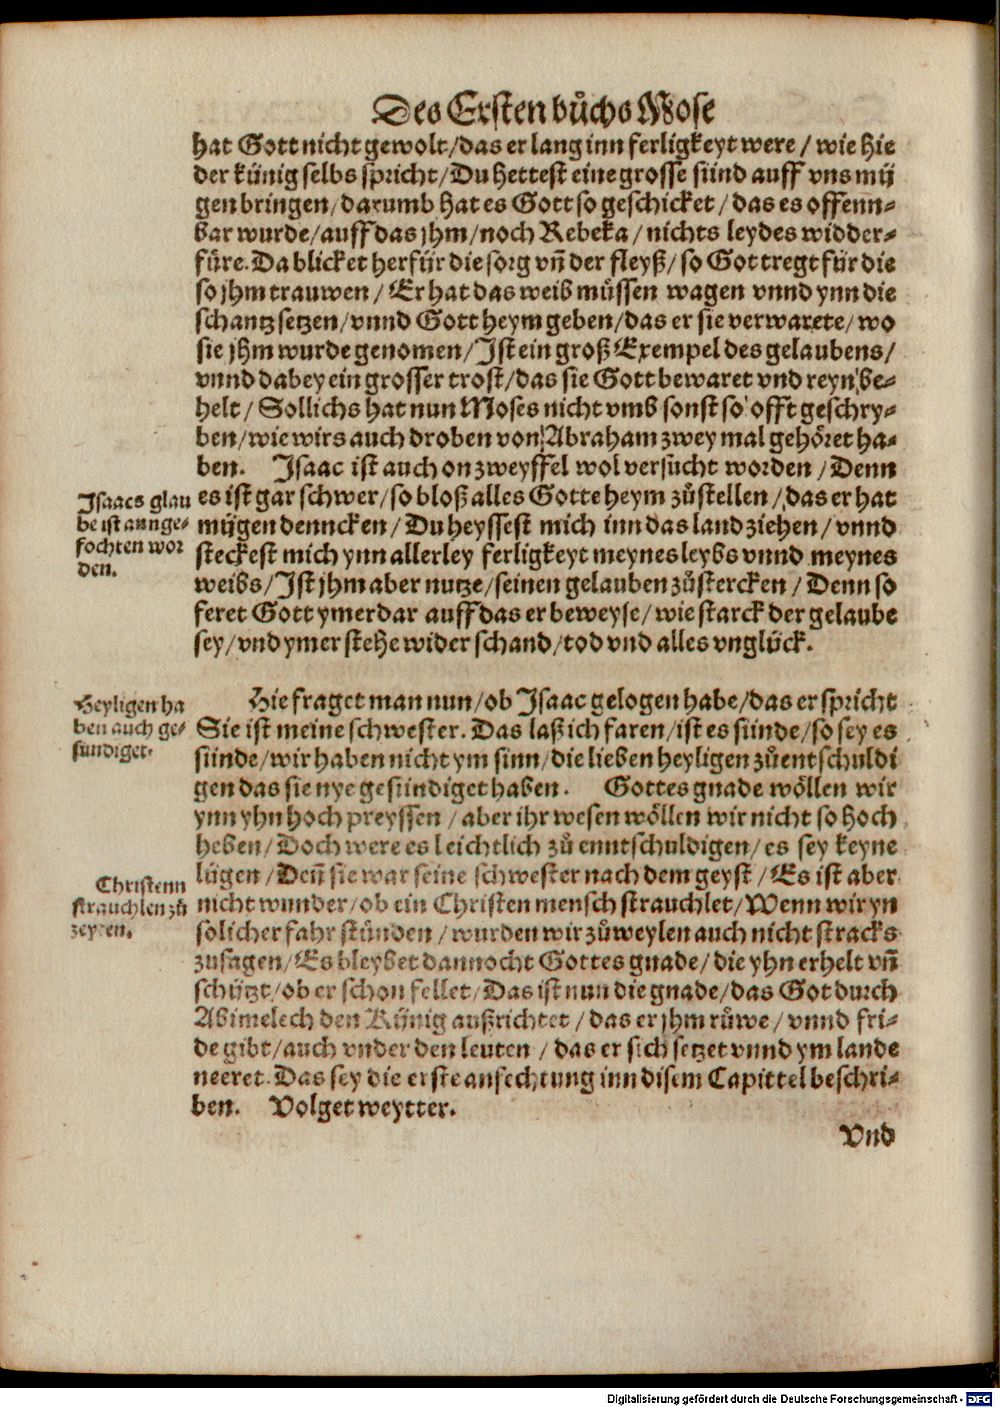 Des Ersten bůchs Mose
hat Gott nicht gewolt/das er lang inn ferligkeyt were/wie hie
der künig selbs spricht/Du hettest eine grosse sünd auff vns mü
gen bringen/darumb hat es Gott so geschicket/das es offenn-
bar wurde/auff das jhm/noch Rebeka/nichts leydes widder-
füre. Da blicket herfür die sorg vñ der fleyß/so Got tregt für die
so jhm trauwen/Er hat das weib müssen wagen vnnd ynn die
schantz setzen/vnnd Gott heym geben/das er sie verwarete/wo
sie jhm wurde genomen/Ist ein groß Exempel des gelaubens/
vnnd dabey ein grosser trost/das sie Gott bewaret vnd reyn be-
helt/Sollichs hat nun Moses nicht vmb sonst so offt geschry-
ben/wie wirs auch droben von Abraham zwey mal gehöret ha-
ben. Isaac ist auch on zweyffel wol versücht worden/Denn
Isaacs glau
be ist annge-
fochten wor
den.
es ist gar schwer/so bloß alles Gotte heym zůstellen/das er hat
mügen denncken/Du heyssest mich inn das land ziehen/vnnd
steckest mich ynn allerley ferligkeyt meynes leybs vnnd meynes
weibs/Ist jhm aber nutze/seinen gelauben zůstercken/Denn so
feret Gott ymerdar auff das er beweyse/wie starck der gelaube
sey/vnd ymer stehe wider schand/tod vnd alles vnglück.
Heyligen ha
ben auch ge-
sündiget.
Hie fraget man nun/ob Isaac gelogen habe/das er spricht
Sie ist meine schwester. Das laß ich faren/ist es sünde/so sey es
sünde/wir haben nicht ym sinn/die lieben heyligen zůentschuldi
gen das sie nye gesündiget haben. Gottes gnade wöllen wir
ynn yhn hoch preyssen/aber ihr wesen wöllen wir nicht so hoch
heben/Doch were es leichtlich zů enntschuldigen/es sey keyne
Christenn
strauchlen zů
zeyten.
lügen/Deñ sie war seine schwester nach dem geyst/Es ist aber
nicht wunder/ob ein Christen mensch strauchlet/Wenn wir yn
solicher fahr stünden/wurden wir zůweylen auch nicht stracks
zusagen/Es bleybet dannocht Gottes gnade/die yhn erhelt vñ
schützt/ob er schon fellet/Das ist nun die gnade/das Got durch
Abimelech den Künig außrichtet/das er jhm růwe/vnnd fri-
de gibt/auch vnder den leuten/das er sich setzet vnnd ym lande
neeret. Das sey die erste anfechtung inn disem Capittel beschri-
ben. Volget weytter.
Vnd
Digitalisierung gefördert durch die Deutsche Forschungsgemeinschaft - DFG